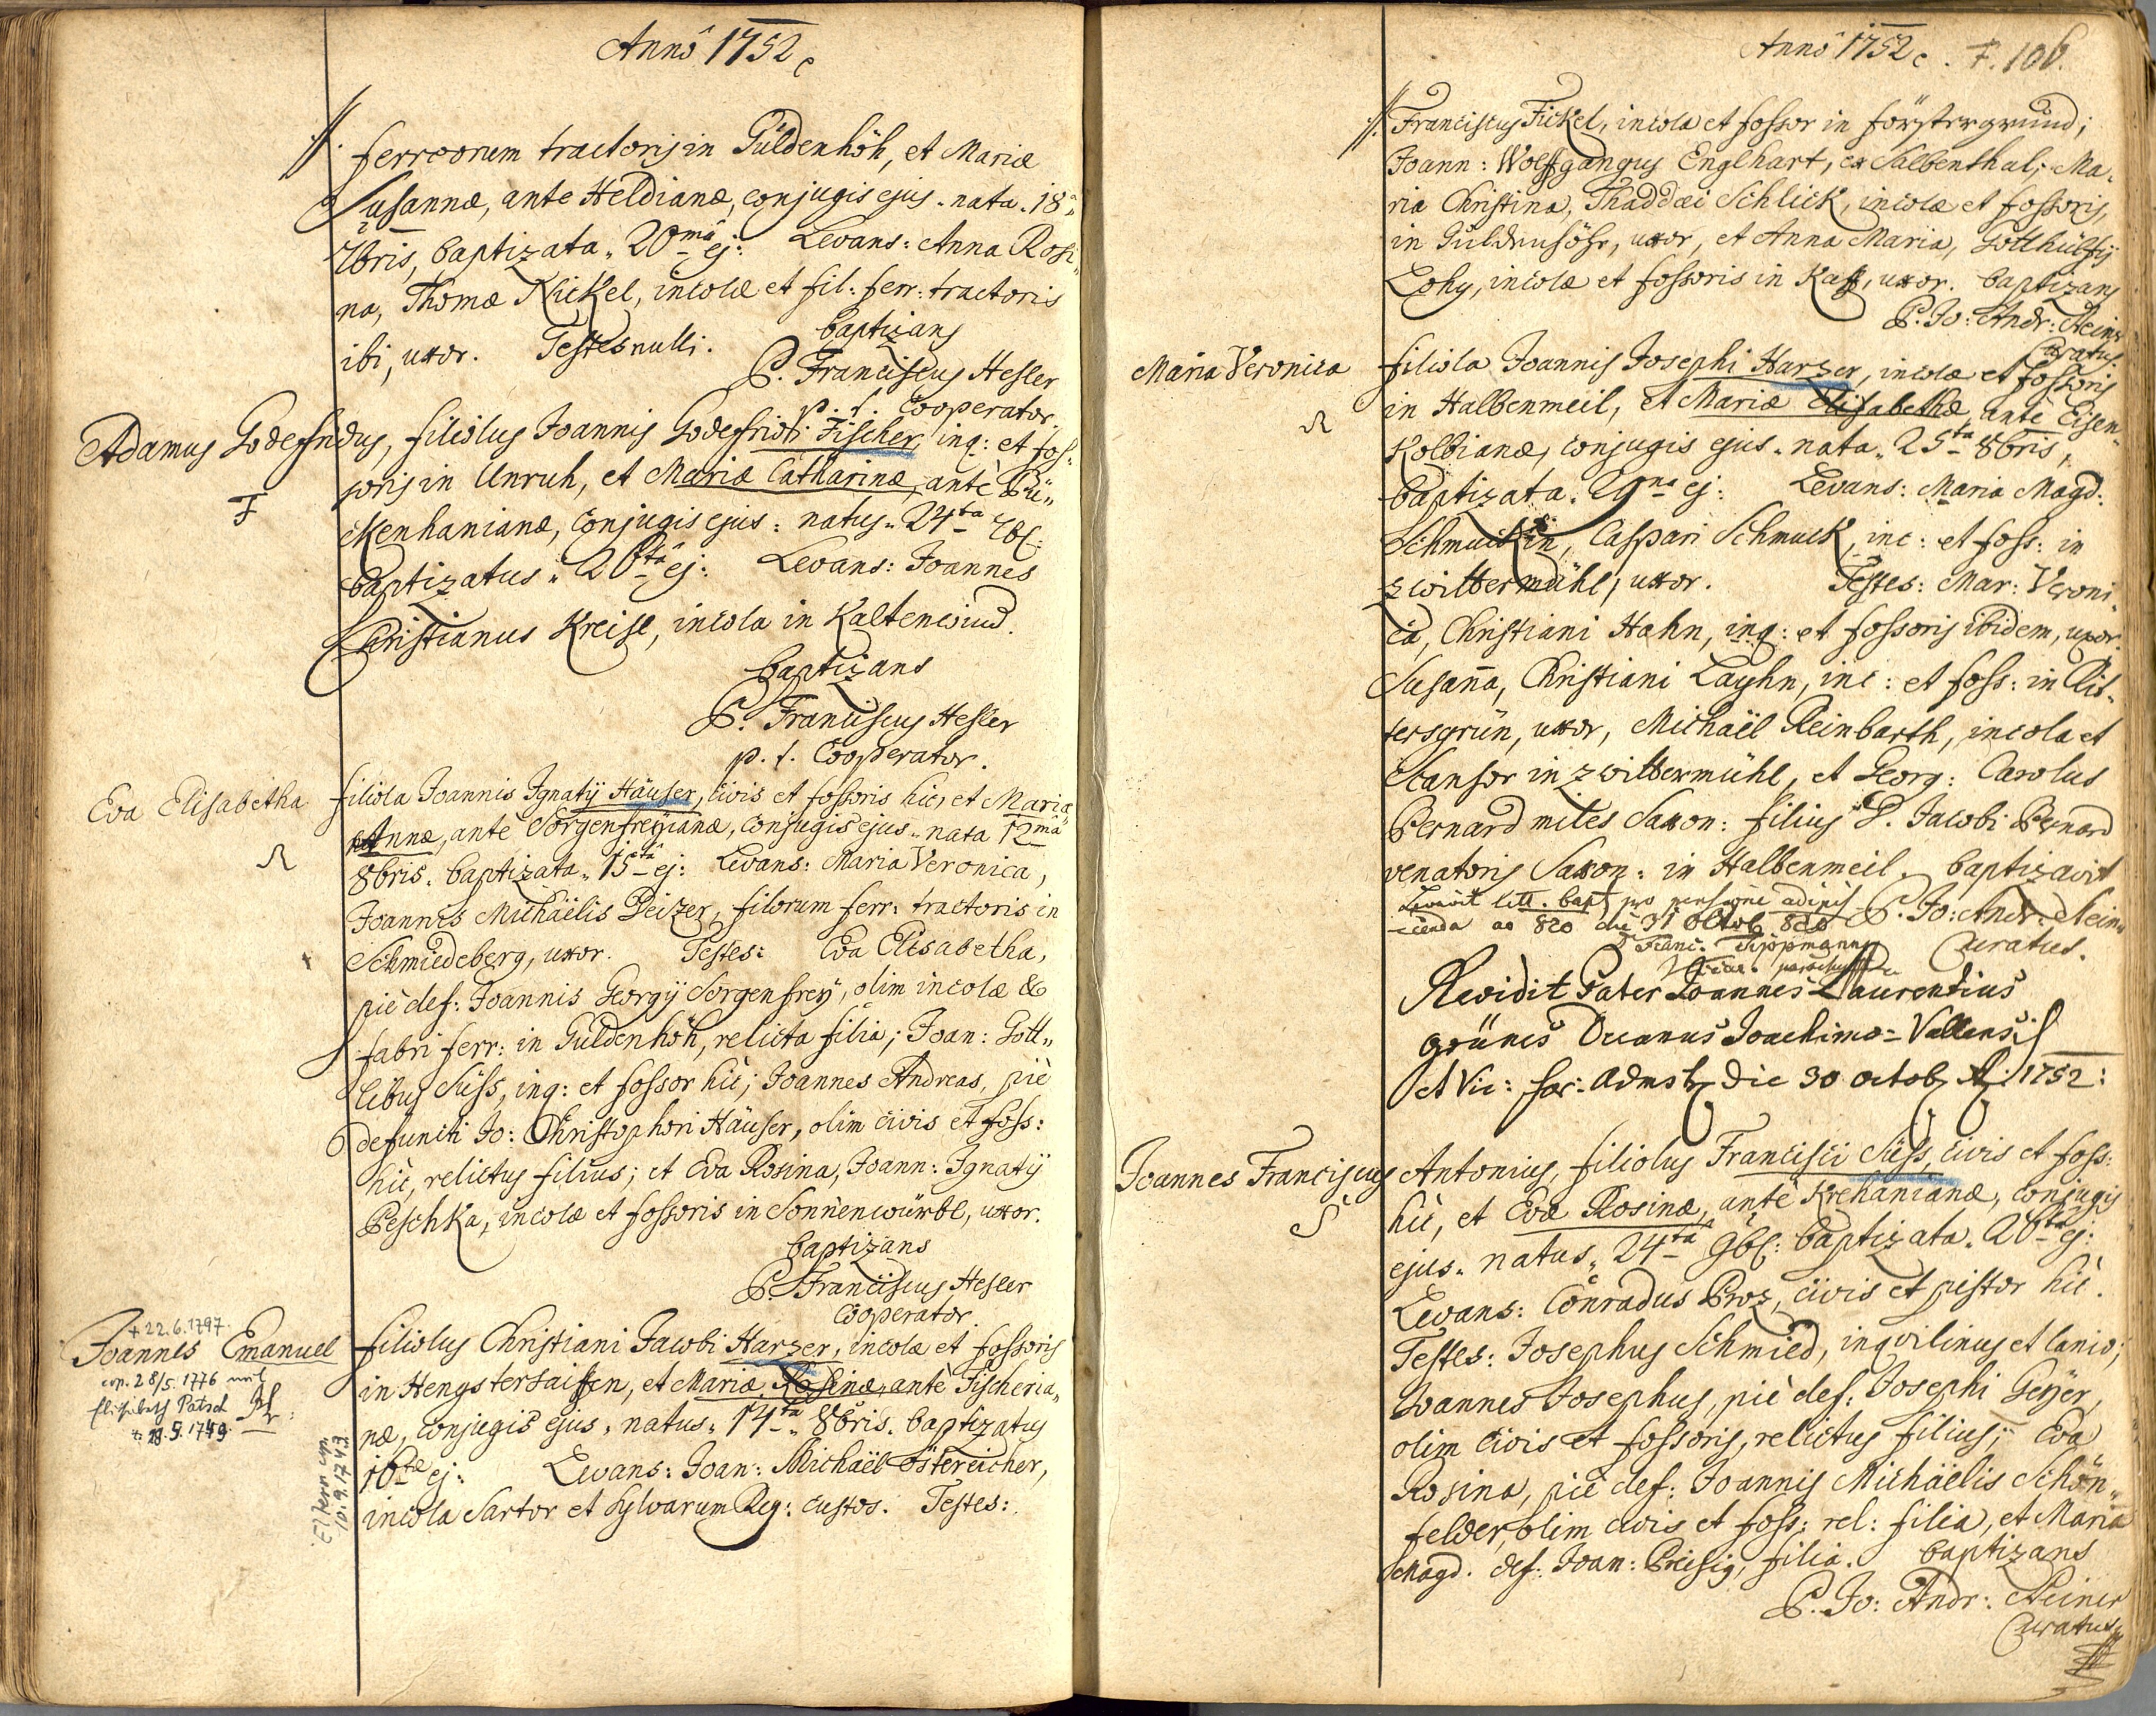 Annô 1752
ferreorum tractoris in Güldenhöh, et Mariæ
Susannæ, ante Heldianæ, conjugis ejus. nata. 18â
7bris, baptizata. 20mâ ej: Levans: Anna Rosi„
na, Thomæ Kickel, incolæ et fil: ferr: tractoris
ibi, uxor. Testes nulli. baptizans
P. Franciscus Hesler
p. t. Cooperator.
Adamus Godefridus, filiolus Joannis Godefridi Fischer, inq: et fos„
F
soris in Unruh, et Mariæ Catharinæ, antè Pü„
ckenhanianæ, conjugis ejus: natus. 24ta 7br:
baptizatus. 26ta ej: Levans: Joannes
Christianus Kreisl, incola in Kaltenwind.
baptizans
P. Franciscus Hesler
p. t. Cooperator.
Eva Elisabetha filiola Joannis Ignatij Häuser, civis et fossoris hic, et Maria
Annæ, antè Sorgenfreyianæ, conjugis ejus. nata 12mâ
8bris. baptizata. 15tâ ej: Levans: Maria Veronica,
Joannis Michäelis Peizer, filorum ferr: tractoris in
Schmiedeberg, uxor. Testes: Eva Elisabetha,
piè def: Joannis Georgij Sorgenfrey, olim incolæ &
fabri ferr: in Güldenhöh, relicta filia; Joan: Gott„
libus Süss, inq: et fossor hìc; Joannes Andreas, piè
defuncti Jo: Christophori Häuser, olim civis et foss:
hìc, relictus filius; et Eva Rosina, Joann: Ignatij
Peschka, incolæ et fossoris in Sonnenwürbl, uxor.
baptizans
P. Franciscus Hesler
Cooperator.
+ 22.6.1797.
Joannes Emanuel filiolus Christiani Jacobi Harzer, incolæ et fossoris
cop. 28/5. 1776 mit
Elisabeth Patsch
*. 28.5.1749.
Eltern cop.
10.9.1743.
in Hengstersaissen, et Mariæ Rosinæ, antè Fischeria„
næ, conjugis ejus, natus. 14ta 8bris. baptizatus
16ta ej: Levans: Joan: Michäel Östereicher,
incola Sartor et Sylvarum Reg: custos. Testes:
Annô 1752. F. 106.
Franciscus Fickel, incola et fossor in Förstergrund;
Joann: Wolffgangus Englhart, ex Salbenthal; Ma„
ria Christina, Thaddæi Schlick, incolæ et fossoris,
in Güldenhöhe, uxor, et Anna Maria, Gotthülffij
Lohy, incolæ et fossoris in Kaff, uxor. baptizans
P. Jo: Andr: Heiner
Curatus.
Maria Veronica filiola Joannis Josephi Harzer, incolæ et fossoris
in Halbenmeil, et Mariæ Elisabethæ, antè Eisen„
Kolbianæ, conjugis ejus. nata. 25ta 8bris,
baptizata. 29na ej: Levans: Maria Magd:
Schmuckin, Caspari Schmuck, inc: et foss: in
zwittermühl, uxor. Testes: Mar: Veroni„
ca, Christiani Hahn, inq: et fossoris ibidem, uxor.
Susaña, Christiani Layhn, inc: et foss: in Rit„
tersgrün, uxor, Michäel Reinbarth, incola et
Scansor in zwittermühl, et Georg: Carolus
Bernard miles Saxon: filius D. Jacobi Bernard
venatoris Saxon: in Halbenmeil. baptizavit
P. Jo: Andr: Heiner
Curatus.
litt. bapt. pro pensione adipis
-cenda ao 820 die 31 Octob 820
Revidit Pater Joannes Laurentius
grünes Decanus Joachimo=Vallensis
et Vic: for: die 30 octob A: 1752:
Joannes Franciscus Antonius, filiolus Francisci Süss, civis et foss:
S
hìc, et Evæ Rosinæ, antè Krehanianæ, conjugis
ejus. natus. 24ta 9br: baptizata. 26ta ej:
Levans: Conradus Proz, civis et pistor hìc.
Testes: Josephus Schmied, inqvilinus et lanio;
Joannes Josephus, piè def: Josephi Geÿer,
olim civis et fossoris, relictus filius; Eva
Rosina, piè def: Joannis Michäelis Schön„
felder, olim civis et foss: rel: filia, et Maria
Magd. def: Joan: Preisig, filia. baptizans
P. Jo: Andr: Heiner
Curatus